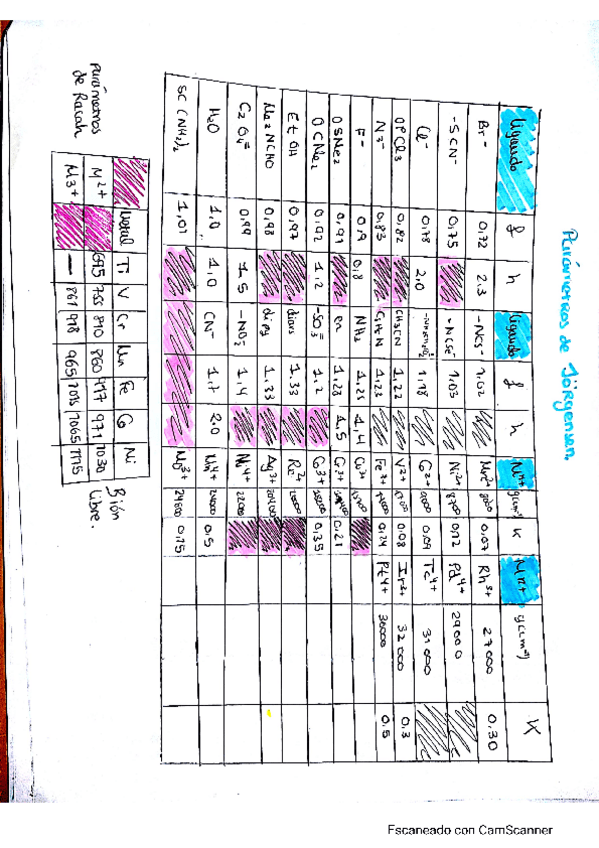 Parámetros de Jörgensen.
Ligando f h Ligando f h Mn+ g(cm-1) K Mn+ g(cm-1) K
Br- 0,72 2,3 -NCS- 1,02 Mn2+ 8000 0,07 Rh3+ 27000 0,30
-SCN- 0,75 -NCSe- 1,03 Ni2+ 8700 0,12 Pd4+ 29000
Cl- 0,78 2,0 1,18 Co2+ 9000 0,09 Tc4+ 31000
OPCl3 0,82 CH3CN 1,22 V2+ 0,08 Ir3+ 32000 0,3
N3- 0,83 C5H5N 1,23 Fe3+ 14000 0,24 Pt4+ 36000 0,5
F- 0,9 0,8 NH3 1,25 1,4
OSMe2 0,91 en 1,28 1,5 Cr3+ 0,21
OCMe2 0,92 1,2 -SO3= 1,2 Co3+ 0,35
EtOH 0,97 diars 1,33
Me2NCHO 0,98 dipy 1,33 Ag3+
C2O4= 0,99 1,5 -NO2- 1,4 22000
H2O 1,0 1,0 CN- 1,7 2,0 Mn4+ 24000 0,5
SC(NH2)2 1,01 Mo3+ 24600 0,15
Parámetros
de Racah
Metal Ti V Cr Mn Fe Co Ni
M2+ 695 755 810 860 917 971 1030
M3+ — 861 918 965 1015 1065 1115
Bión
libre.
Escaneado con CamScanner